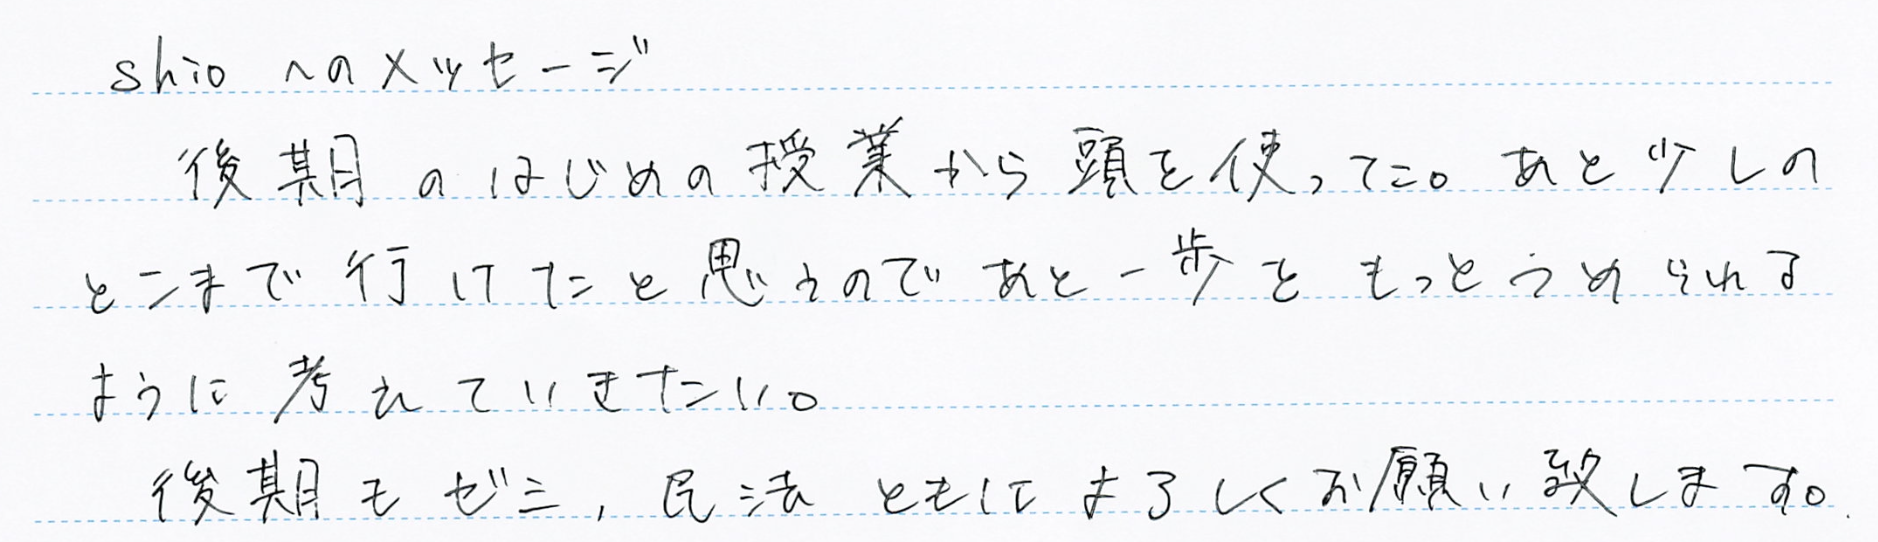 shioへのメッセージ
後期のはじめの授業から頭を使った。あと少しの
とこまで行けたと思うのであと一歩をもっとうめられる
ように考えていきたい。
後期もゼミ,民法ともによろしくお願い致します。